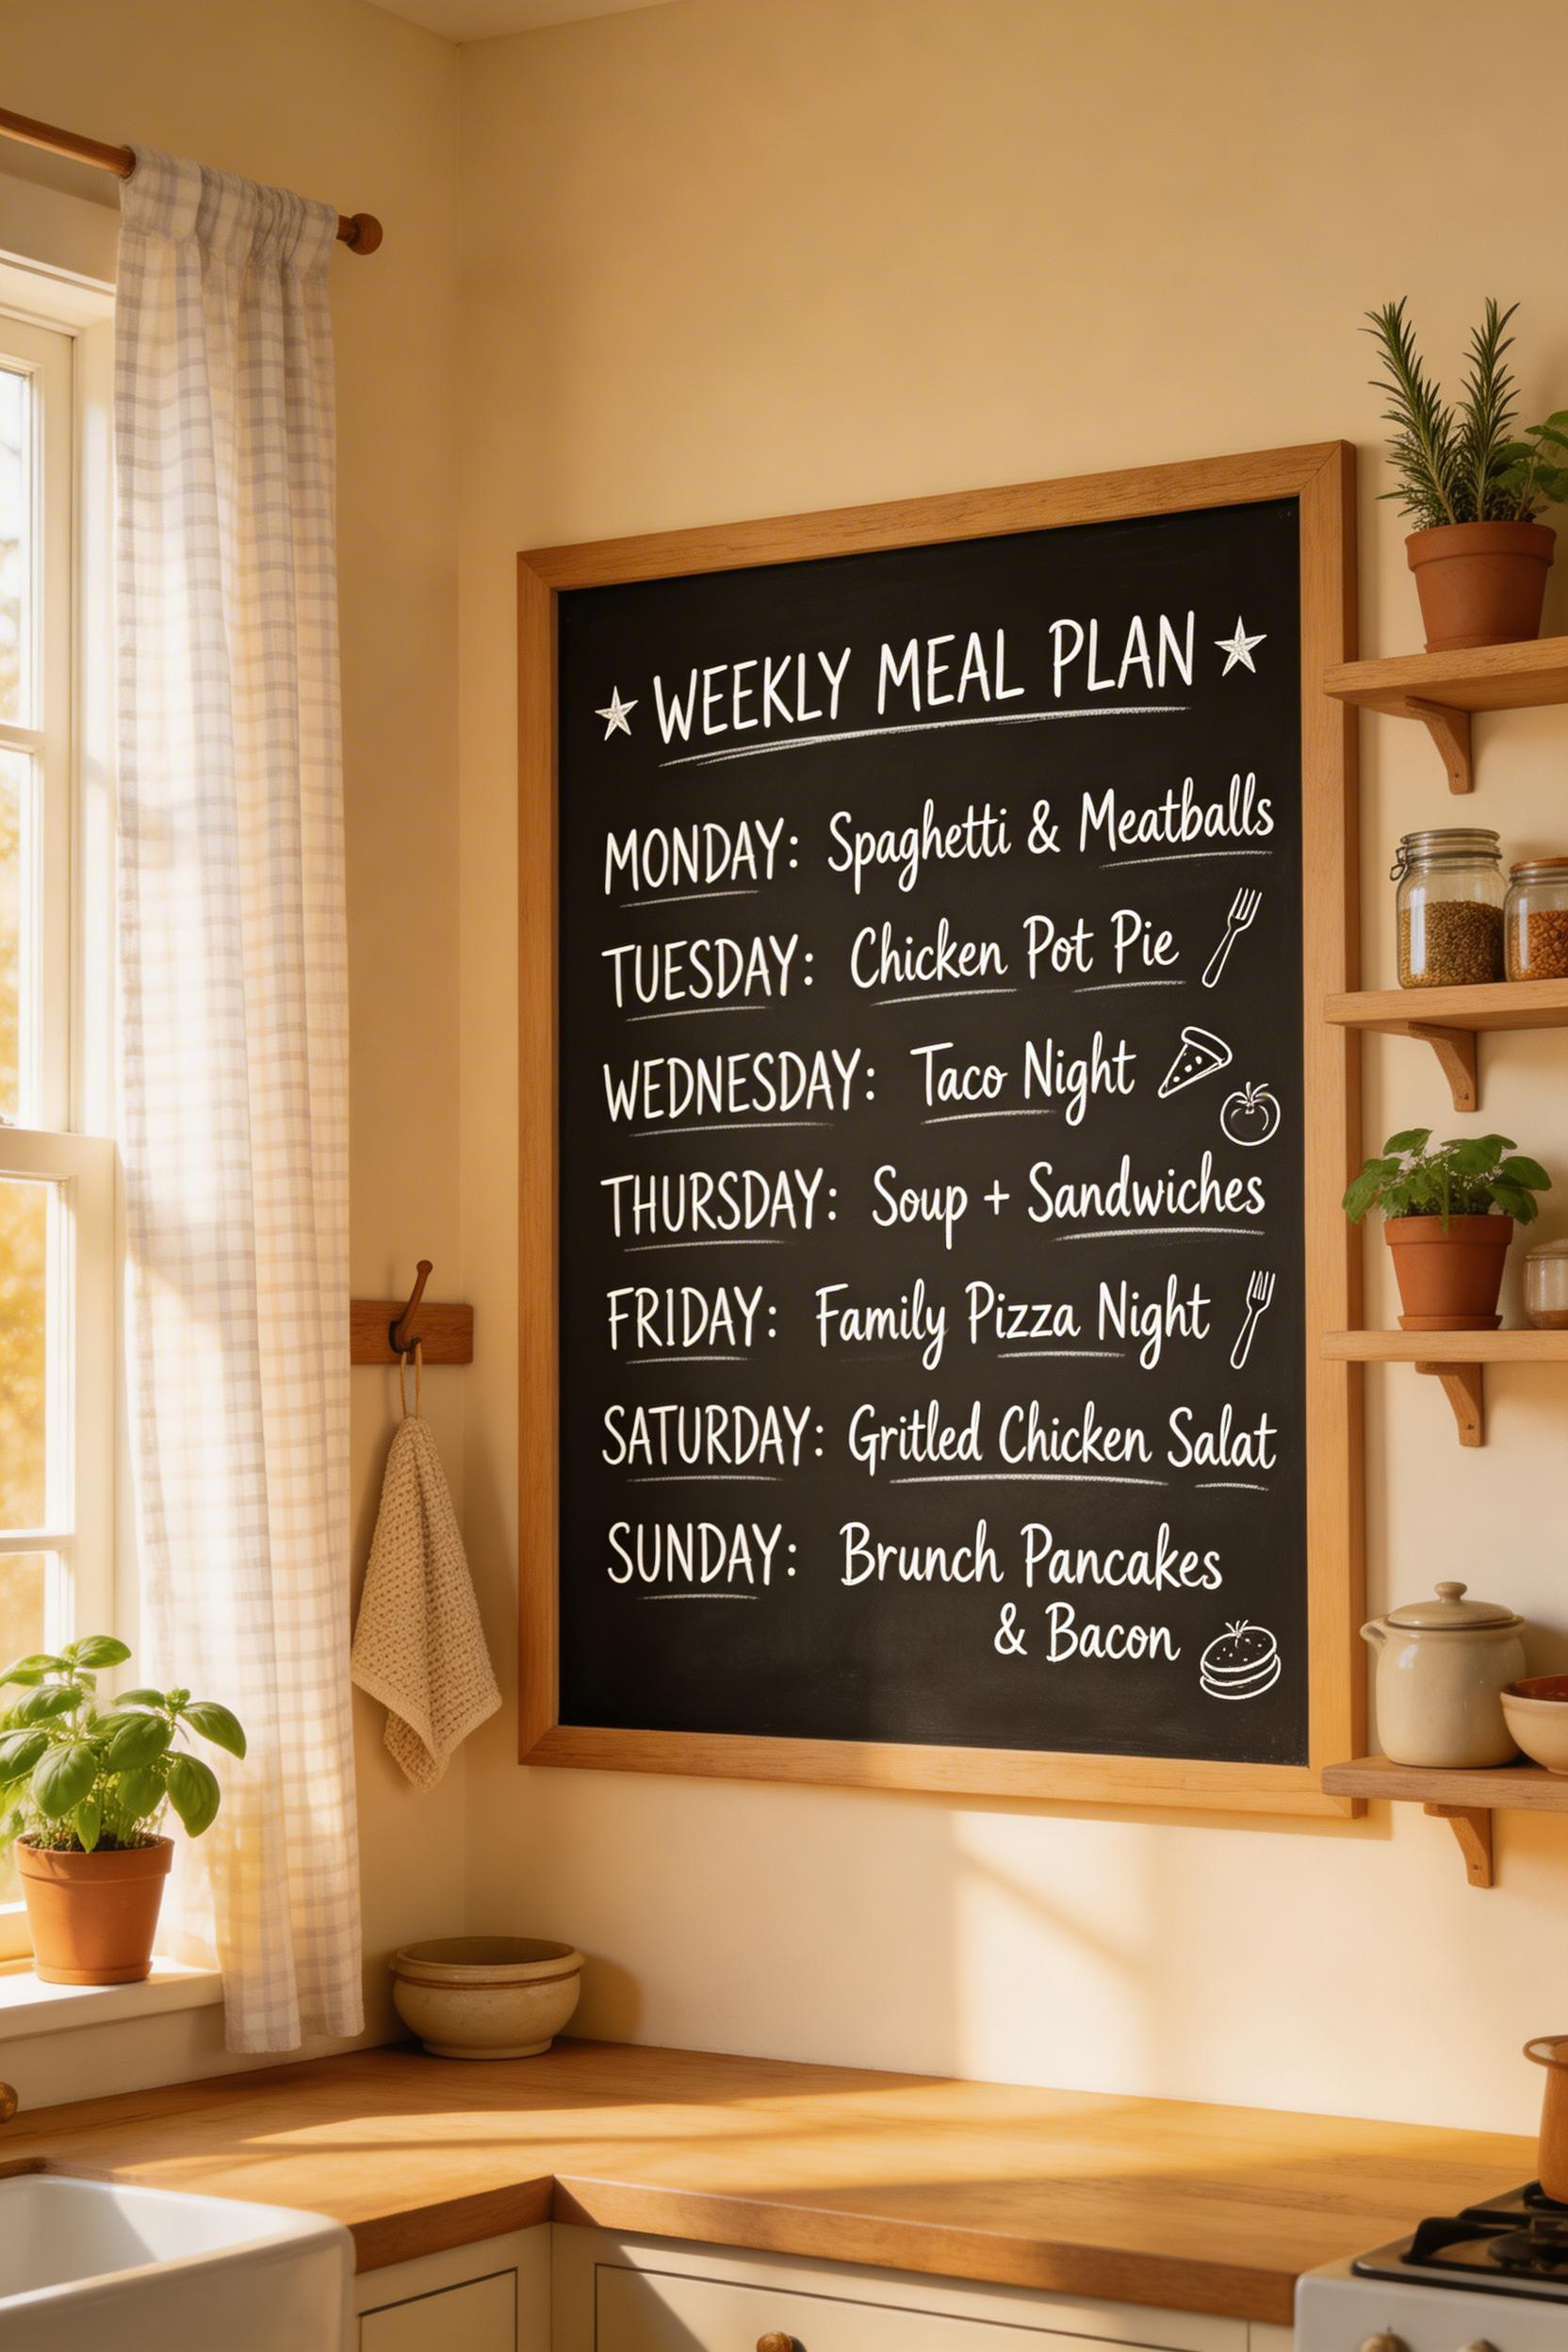 WEEKLY MEAL PLAN
MONDAY: Spaghetti & Meatballs
TUESDAY: Chicken Pot Pie
WEDNESDAY: Taco Night
THURSDAY: Soup + Sandwiches
FRIDAY: Family Pizza Night
SATURDAY: Gritled Chicken Salat
SUNDAY: Brunch Pancakes
& Bacon